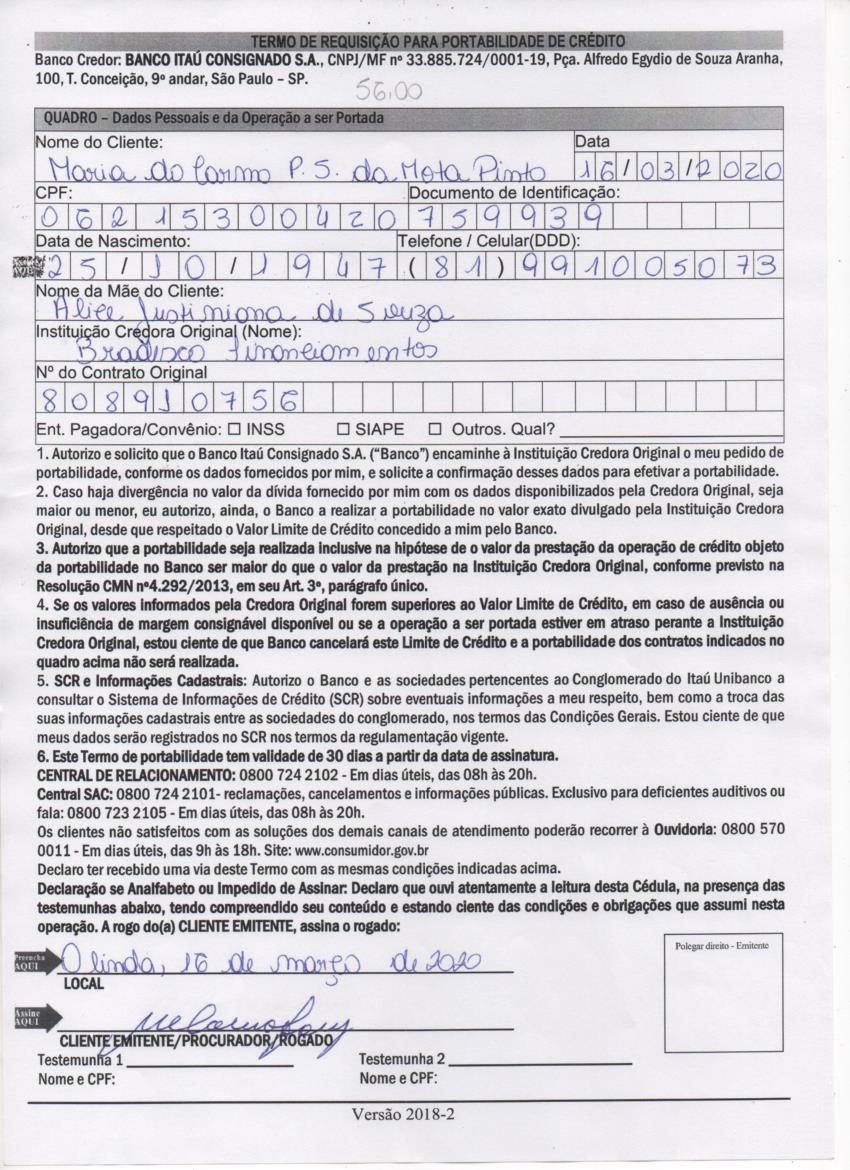 TERMO DE REQUISIÇÃO PARA PORTABILIDADE DE CRÉDITO
Banco Credor: BANCO ITAÚ CONSIGNADO S.A., CNPJ/MF nº 33.885.724/0001-19, Pça. Alfredo Egydio de Souza Aranha,
100, T. Conceição, 9º andar, São Paulo – SP.
56,00
QUADRO – Dados Pessoais e da Operação a ser Portada
Nome do Cliente: Data
Maria do Carmo P. S. da Mota Pinto 16/03/2020
CPF: Documento de Identificação:
06215300420 759939
Data de Nascimento: Telefone / Celular(DDD):
25/10/1947 (81)991005073
Nome da Mãe do Cliente:
Alice Justiniana de Souza
Instituição Credora Original (Nome):
Bradesco Financiamentos
Nº do Contrato Original
808910756
Ent. Pagadora/Convênio: ☐ INSS ☐ SIAPE ☐ Outros. Qual?
1. Autorizo e solicito que o Banco Itaú Consignado S.A. (“Banco”) encaminhe à Instituição Credora Original o meu pedido de
portabilidade, conforme os dados fornecidos por mim, e solicite a confirmação desses dados para efetivar a portabilidade.
2. Caso haja divergência no valor da dívida fornecido por mim com os dados disponibilizados pela Credora Original, seja
maior ou menor, eu autorizo, ainda, o Banco a realizar a portabilidade no valor exato divulgado pela Instituição Credora
Original, desde que respeitado o Valor Limite de Crédito concedido a mim pelo Banco.
3. Autorizo que a portabilidade seja realizada inclusive na hipótese de o valor da prestação da operação de crédito objeto
da portabilidade no Banco ser maior do que o valor da prestação na Instituição Credora Original, conforme previsto na
Resolução CMN nº4.292/2013, em seu Art. 3º, parágrafo único.
4. Se os valores informados pela Credora Original forem superiores ao Valor Limite de Crédito, em caso de ausência ou
insuficiência de margem consignável disponível ou se a operação a ser portada estiver em atraso perante a Instituição
Credora Original, estou ciente de que Banco cancelará este Limite de Crédito e a portabilidade dos contratos indicados no
quadro acima não será realizada.
5. SCR e Informações Cadastrais: Autorizo o Banco e as sociedades pertencentes ao Conglomerado do Itaú Unibanco a
consultar o Sistema de Informações de Crédito (SCR) sobre eventuais informações a meu respeito, bem como a troca das
suas informações cadastrais entre as sociedades do conglomerado, nos termos das Condições Gerais. Estou ciente de que
meus dados serão registrados no SCR nos termos da regulamentação vigente.
6. Este Termo de portabilidade tem validade de 30 dias a partir da data de assinatura.
CENTRAL DE RELACIONAMENTO: 0800 724 2102 - Em dias úteis, das 08h às 20h.
Central SAC: 0800 724 2101- reclamações, cancelamentos e informações públicas. Exclusivo para deficientes auditivos ou
fala: 0800 723 2105 - Em dias úteis, das 08h às 20h.
Os clientes não satisfeitos com as soluções dos demais canais de atendimento poderão recorrer à Ouvidoria: 0800 570
0011 - Em dias úteis, das 9h às 18h. Site: www.consumidor.gov.br
Declaro ter recebido uma via deste Termo com as mesmas condições indicadas acima.
Declaração se Analfabeto ou Impedido de Assinar: Declaro que ouvi atentamente a leitura desta Cédula, na presença das
testemunhas abaixo, tendo compreendido seu conteúdo e estando ciente das condições e obrigações que assumi nesta
operação. A rogo do(a) CLIENTE EMITENTE, assina o rogado:
Polegar direito - Emitente
Preencha
AQUI
Olinda, 16 de março de 2020
LOCAL
Assine
AQUI
CLIENTE EMITENTE/PROCURADOR/ROGADO
Testemunha 1 Testemunha 2
Nome e CPF: Nome e CPF:
Versão 2018-2